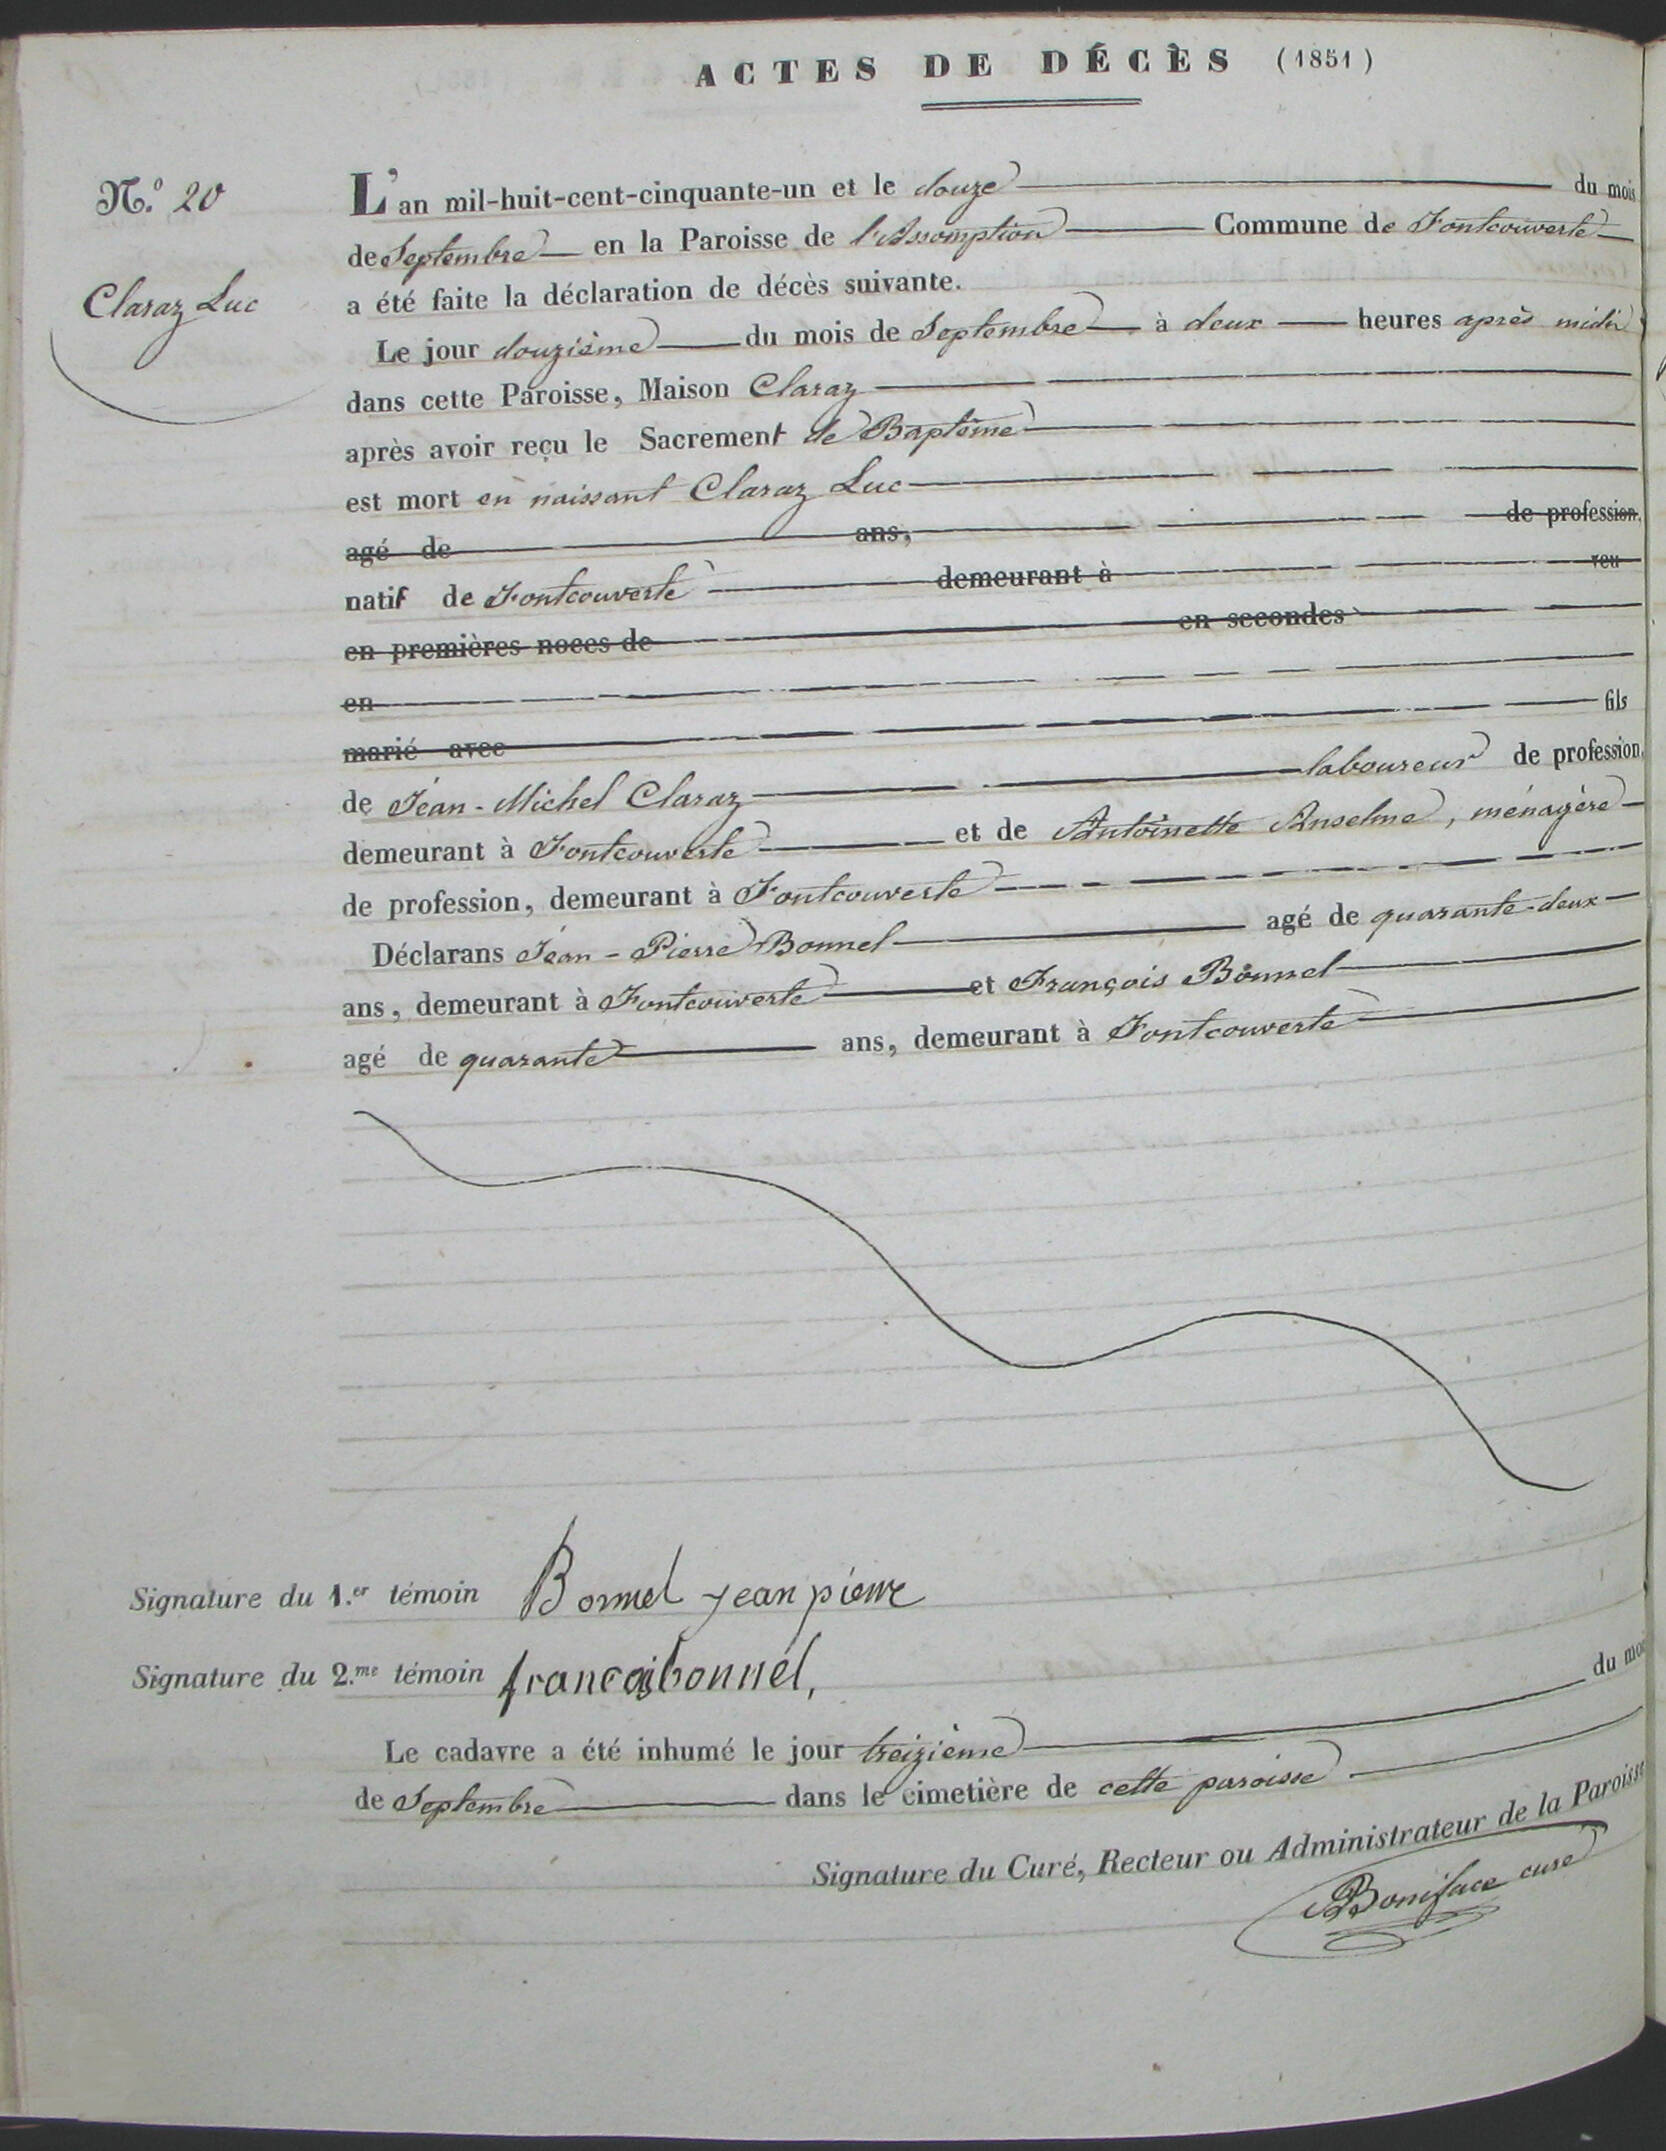 ACTES DE DÉCÈS (1851)
N.o 20
Claraz Luc
L'an mil-huit-cent-cinquante-un et le douze du mois
de Septembre en la Paroisse de l'Assomption Commune de Fontcouverte
a été faite la déclaration de décès suivante.
Le jour douzième du mois de Septembre à deux heures après midi
dans cette Paroisse, Maison Claraz
après avoir reçu le Sacrement de Baptême
est mort en naissant Claraz Luc
agé de ans, de profession,
natif de Fontcouverte demeurant à veu
en premières noces de en secondes
en
marié avec fils
de Jean-Michel Claraz laboureur de profession,
demeurant à Fontcouverte et de Antoinette Anselme, ménagère
de profession, demeurant à Fontcouverte
Déclarans Jean-Pierre Bonnel agé de quarante-deux
ans, demeurant à Fontcouverte et François Bonnel
agé de quarante ans, demeurant à Fontcouverte
Signature du 1.er témoin Bonnel jean pierre
Signature du 2.me témoin françaibonnél,
Le cadavre a été inhumé le jour treizième du moi
de Septembre dans le cimetière de cette paroisse
Signature du Curé, Recteur ou Administrateur de la Paroisse
Boniface curé